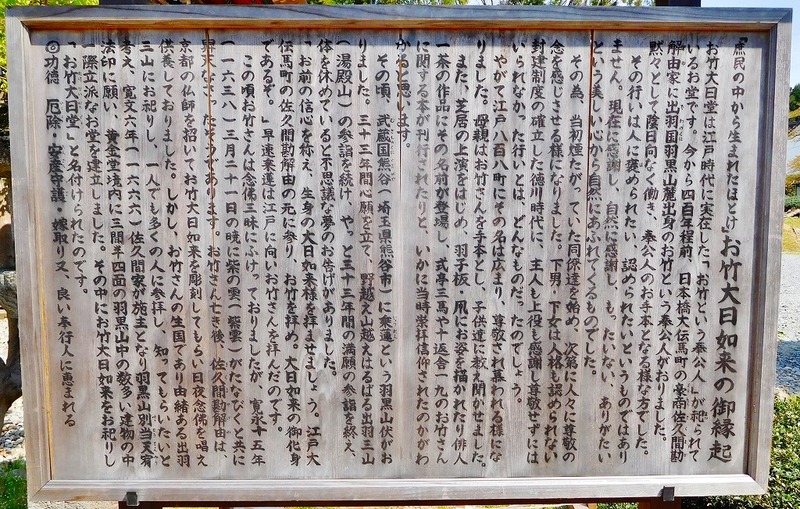 「庶民の中から生まれたほとけ」お竹大日如来の御縁起
お竹大日堂は江戸時代に実在した「お竹という奉公人」が祀られて
いるお堂です。今から四百年程前、日本橋大伝馬町の豪商佐久間勘
解由家に出羽国羽黒山麓出身のお竹という奉公人がおりました。
黙々として蔭日向なく働き、奉公人のお手本となる様な方でした。
その行いは人に褒められたい、認められたいというものではあり
ません。現在に感謝し、自然に感謝し、もったいない、ありがたい
という美しい心から自然にあふれてくるものでした。
その為、当初煙たがっていた同僚達を始め、次第に人々に尊敬の
念を感じさせる様になりました。下男、下女は人格も認められない
封建制度の確立した徳川時代に、主人も上役も感謝し尊敬せずには
いられなかった行いとは、どんなものだったのでしょう。
やがて江戸八百八町にその名は広まり、尊敬され慕われる様にな
りました。母親はお竹さんを手本とし、子供達に教え聞かせました。
また、芝居の上演をはじめ、羽子板、凧にお姿を描かれたり俳人
一茶の作品にその名前が登場し、式亭三馬や十返舎一九のお竹さん
に関する本が刊行されたりと、いかに当時崇拝信仰されたのかがわ
かると思います。
その頃、武蔵国熊谷（埼玉県熊谷市）に乗蓮という羽黒山伏がお
りました。三十三年間心願を立て、野越え山越えはるばる出羽三山
（湯殿山）の参詣を続け、やっと三十三年間の満願の参詣を終え、
体を休めていると不思議な夢のお告げがありました。
「お前の信心を称え、生身の大日如来様を拝ませましょう。江戸大
伝馬町の佐久間勘解由の元に参り、お竹を拝め。大日如来の御化身
であるぞ。」早速乗蓮は江戸に向いお竹さんを拝んだのです。
この頃お竹さんは念佛三昧にふけっておりましたが、寛永十五年
（一六三八）三月二十一日の暁に紫の雲（紫雲）がたなびくと共に
昇天なさったそうであります。お竹さん亡き後、佐久間勘解由は、
京都の仏師を招いてお竹大日如来を彫刻してもらい日夜念佛を唱え
供養しておりました。しかし、お竹さんの生国であり由緒ある出羽
三山にお祀りし、一人でも多くの人に参拝し、知ってもらいたいと
考え、寛文六年（一六六六）佐久間家が施主となり羽黒山別当天宥
法印に願い、黄金堂境内に三間半四面の羽黒山中の数多い建物の中
一際立派なお堂を建立しました。その中にお竹大日如来をお祀りし
「お竹大日堂」と名付けられたのです。
◎功徳　厄除・安産守護・嫁取り又、良い奉行人に恵まれる